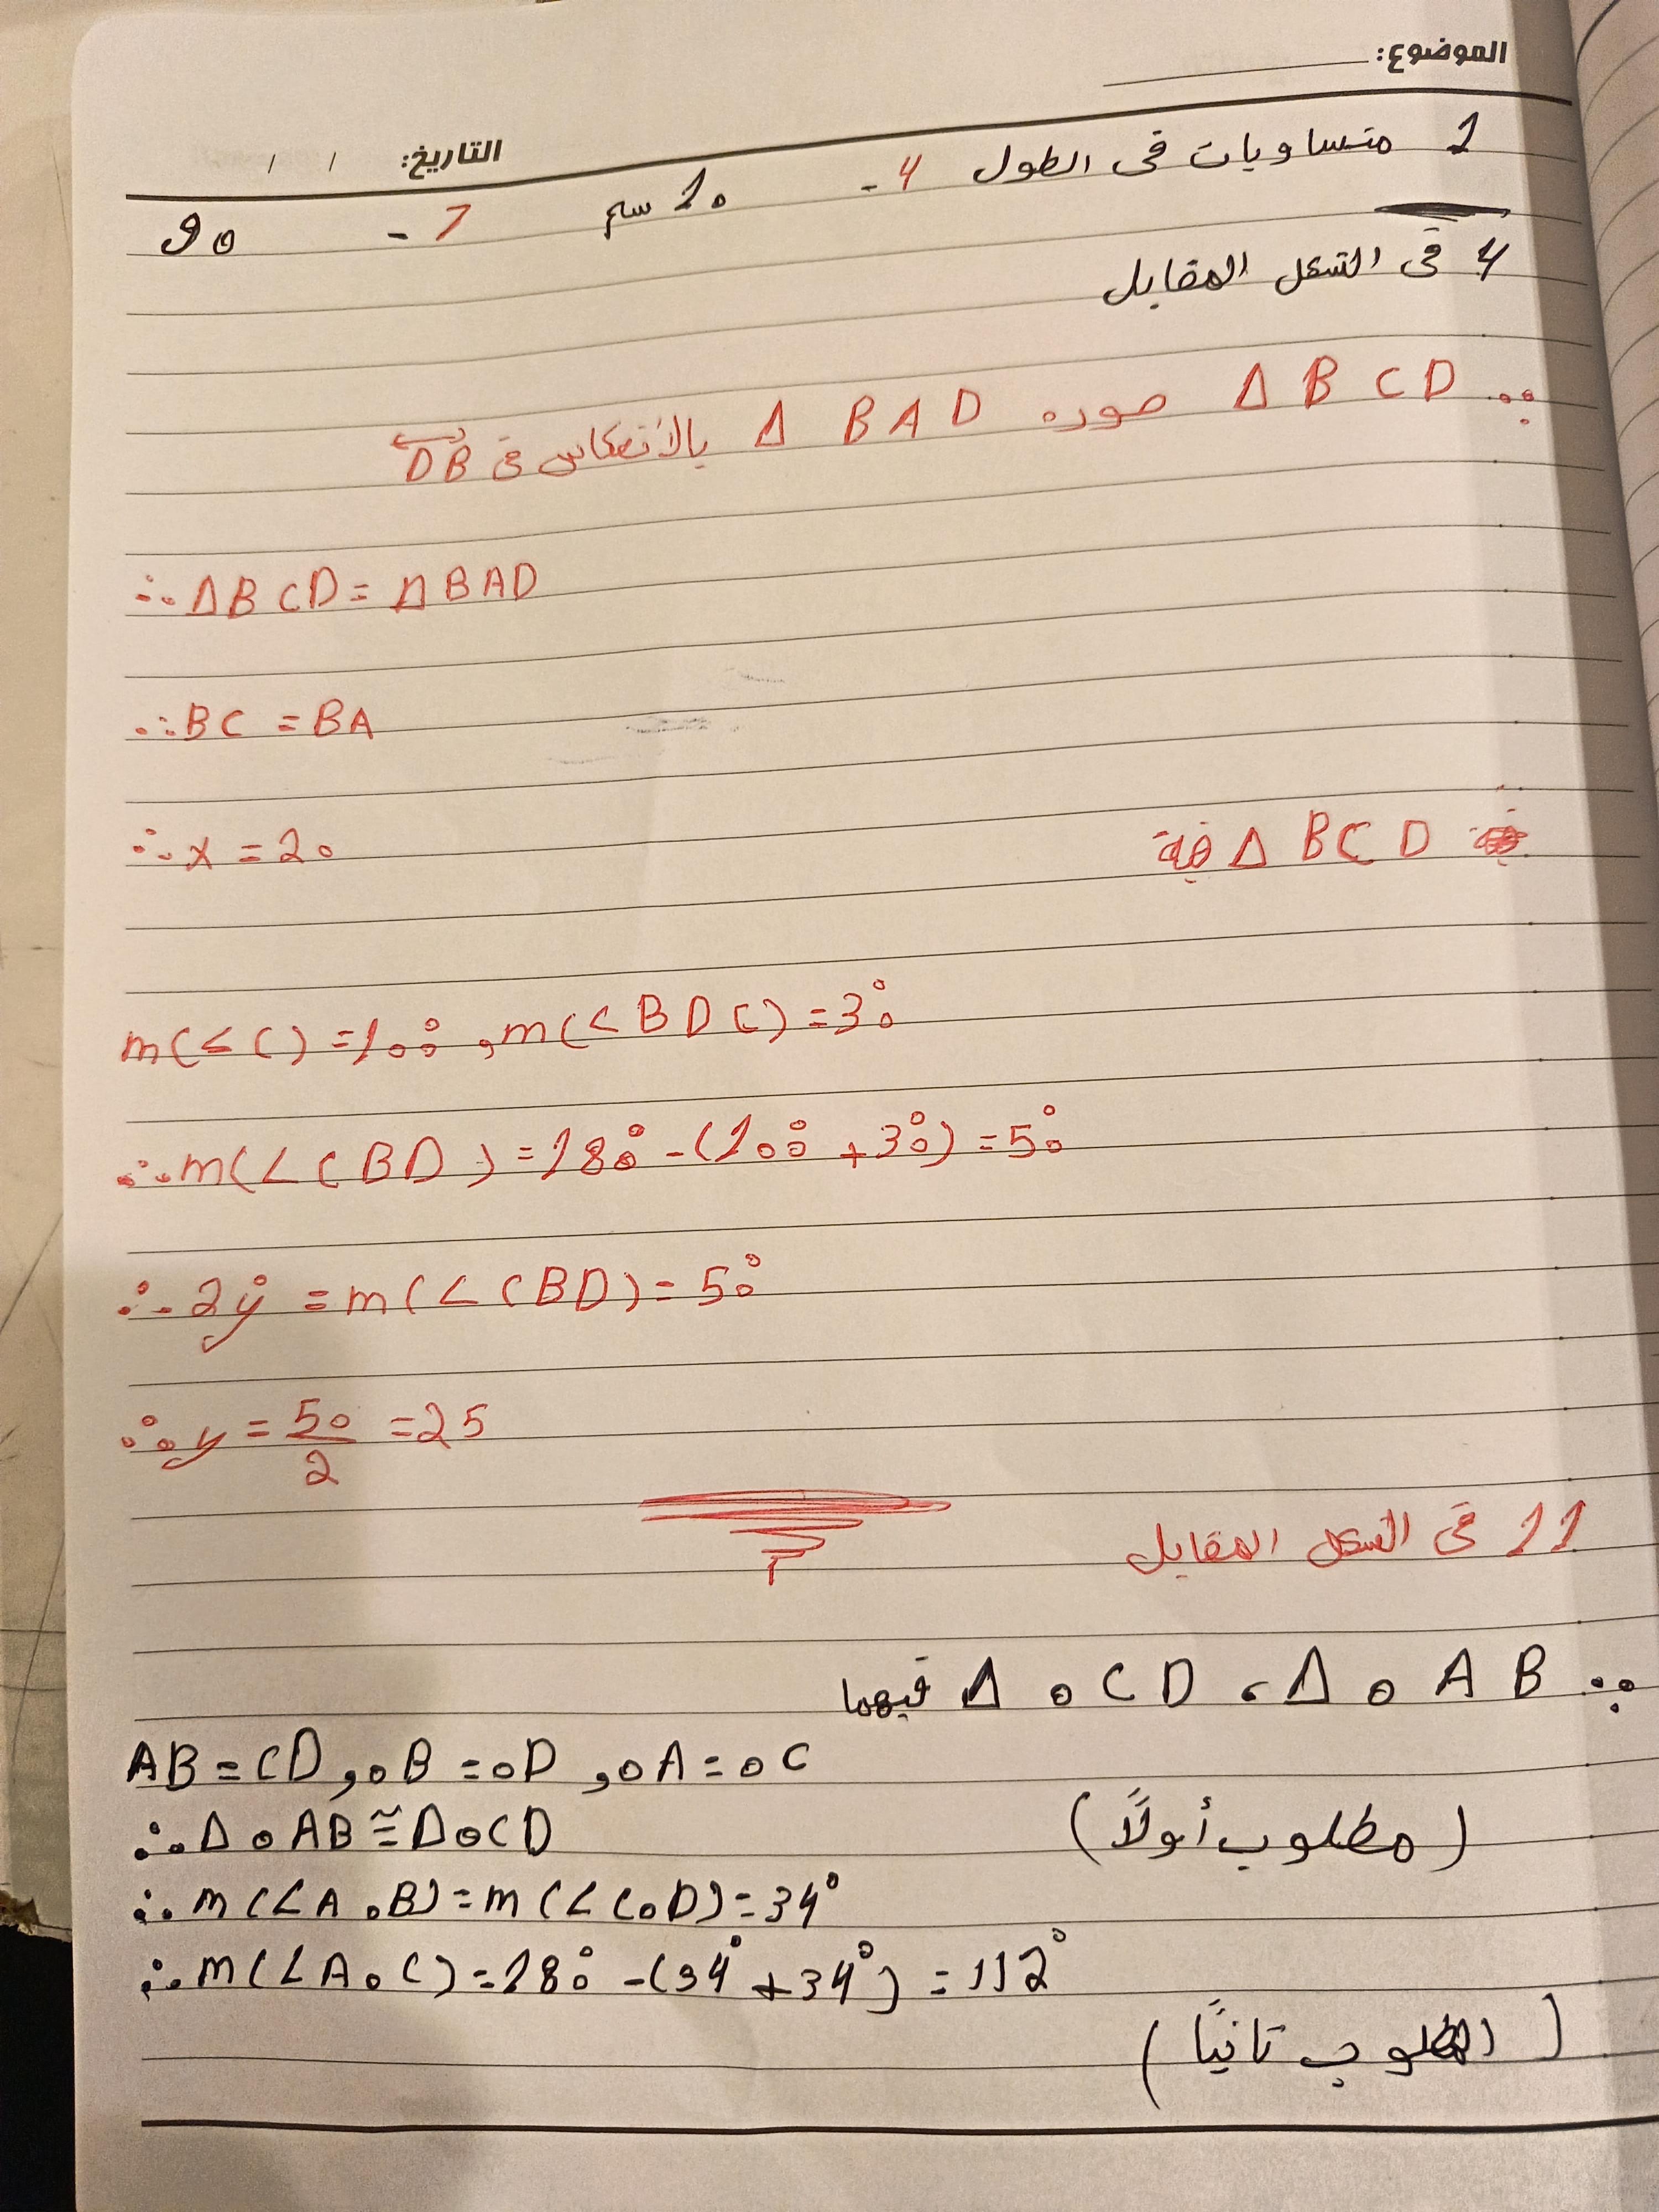 الموضوع:
التاريخ: / /
1 متساويات فى الطول 4- 10 سم 7- 90
4 فى الشكل المقابل
∵ Δ BCD صوره Δ BAD بالأنعكاس فى DB
∴ Δ BCD = Δ BAD
∴ BC = BA
∴ x = 20
Δ BCD فية
m(∠C) = 100°, m(∠BDC) = 30°
∴ m(∠CBD) = 180° - (100° + 30°) = 50°
∴ 2y° = m(∠CBD) = 50°
∴ y = 50/2 = 25
11 فى الشكل المقابل
∵ Δ OAB ، Δ OCD فيهما
AB = CD, OB = OD, OA = OC
∴ Δ OAB ≅ Δ OCD (مطلوب أولاً)
∴ m(∠AOB) = m(∠COD) = 34°
∴ m(∠AOC) = 180° - (34° + 34°) = 112°
(المطلوب تانياً)